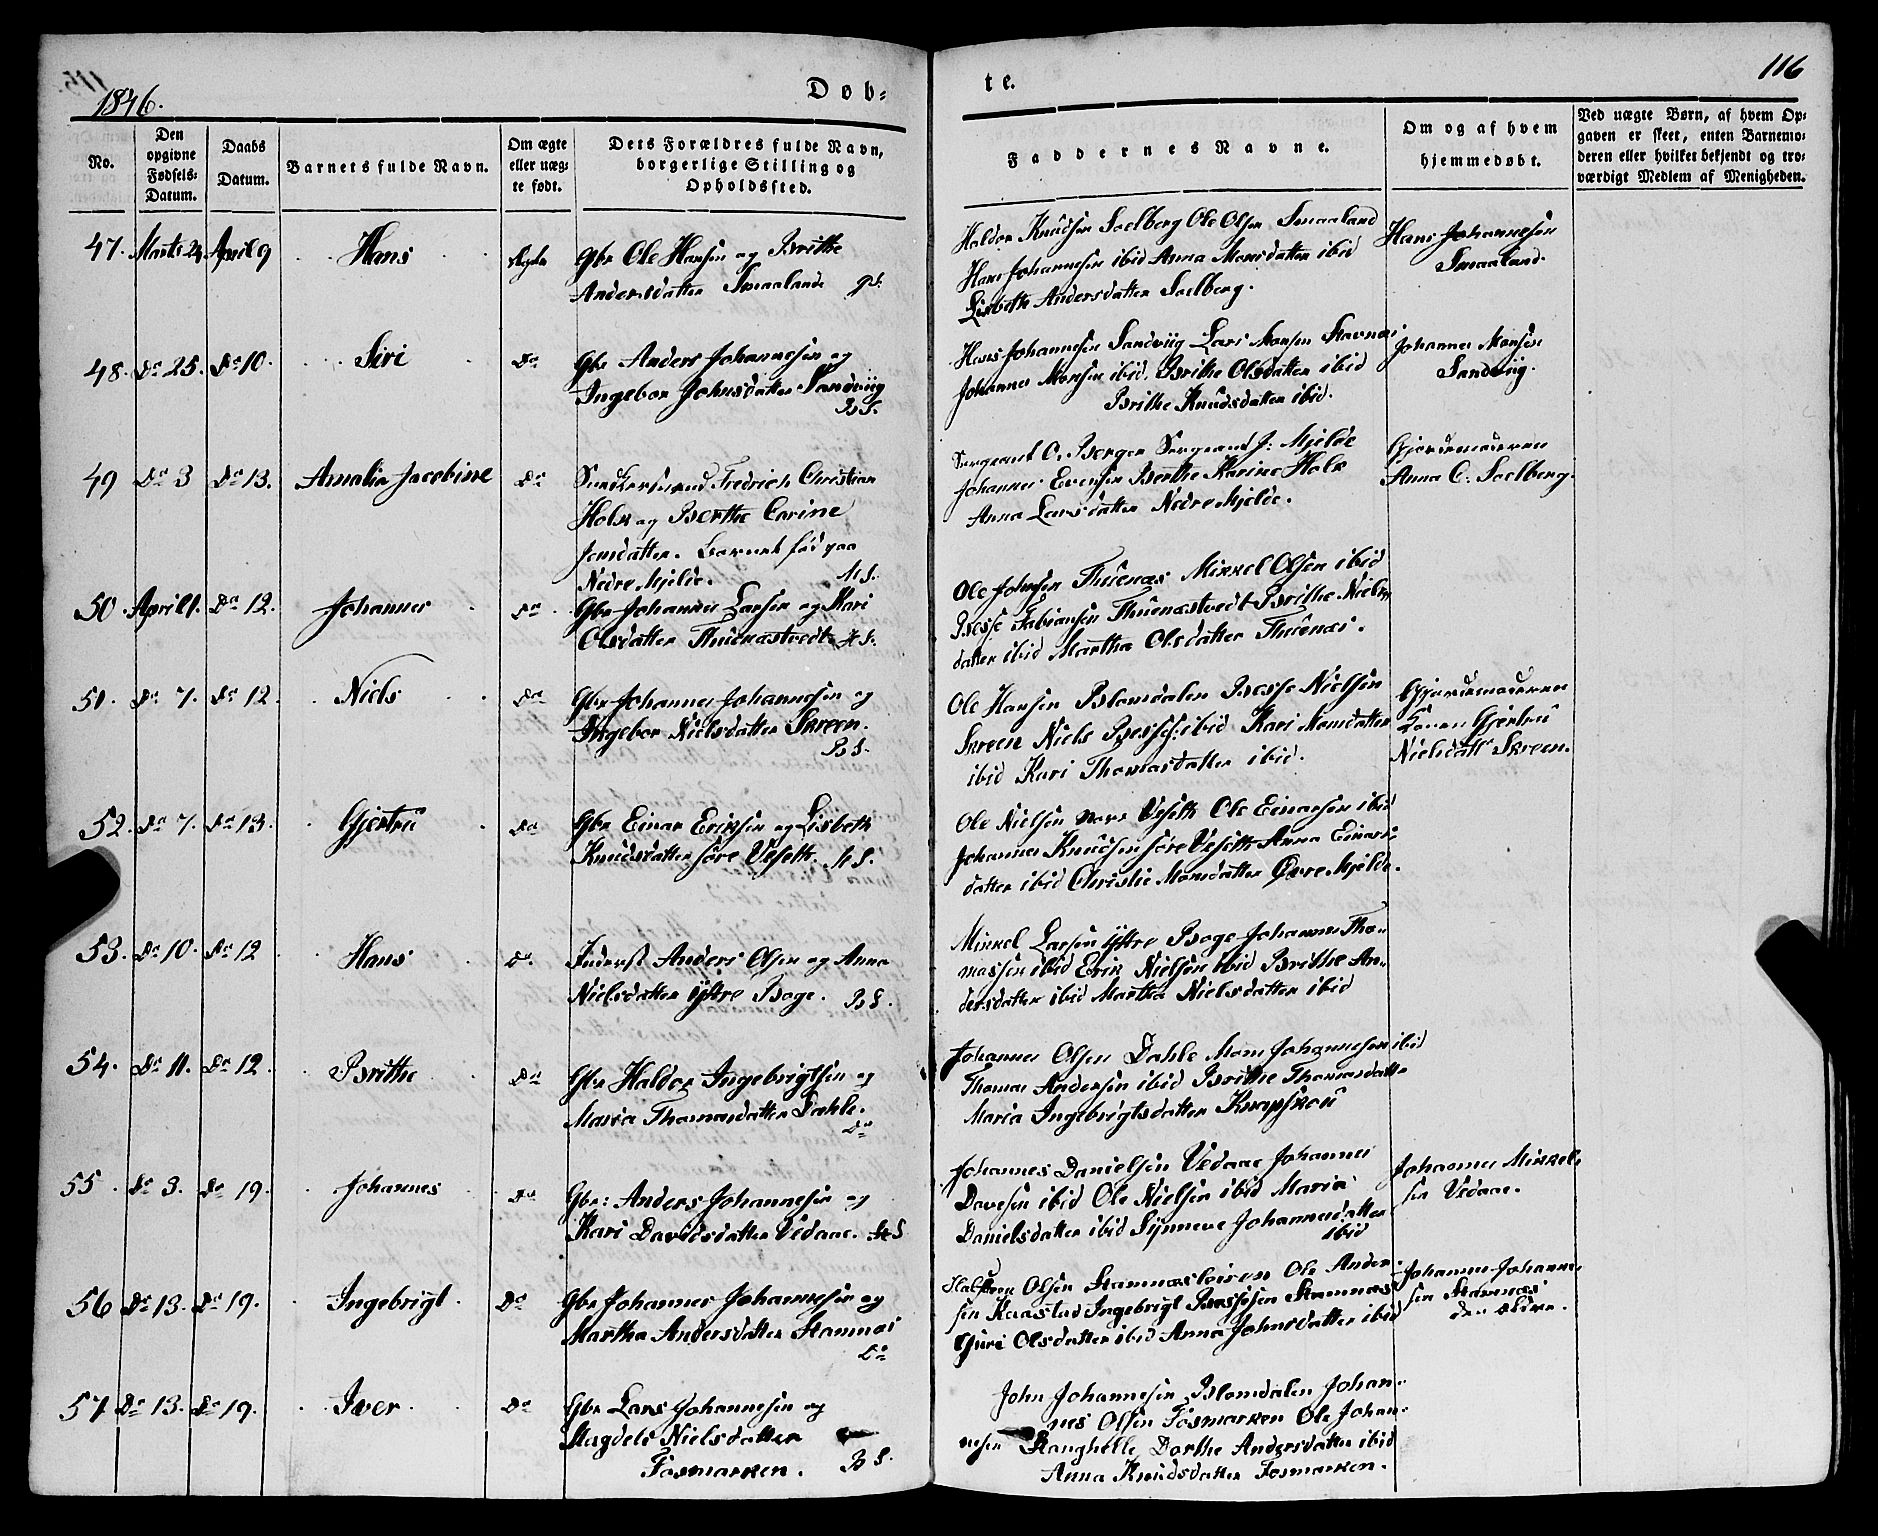 1846.
Døb-
te.
116
No.
Den opgivne Fødsels-Datum.
Daabs Datum.
Barnets fulde Navn.
Om ægte eller uæg-te født.
Dets Forældres fulde Navn,
borgerlige Stilling og
Opholdssted.
Faddernes Navne.
Om og af hvem
hjemmedøbt.
Ved uægte Børn, af hvem Op-
gaven er skeet, enten Barnemo-
deren eller hvilket bekjendt og tro-
værdigt Medlem af Menigheden.
47. Marts 24 April 9 Hans Ægte
Gbr Ole Hansen og Brithe
Andersdatter Smaaland
Haldor Knudsen Saelberg Ole Olsen Smaaland
Hans Johannesen ibid Anna Monsdatter ibid
Lisbeth Andersdatter Saelberg.
Hans Johannesen
Smaaland.
48. Do 25. Do 10. Siri Do
Gbr Anders Johannesen og
Ingebor Johnsdatter Sandviig
B S.
Hans Johannesen Sandviig Lars Monsen Stavnes
Johannes Monsen ibid. Brithe Olsdatter ibid
Brithe Knudsdatter ibid.
Johannes Monsen
Sandviig.
49 Do 3 Do 13. Amalia Jacobine Do
Fredrich Christian
Holk og Berthe Carine
Jansdatter. Barnet fød paa
Nedre Mjelde.
Sergeant O. Berger Sergeant J. Mjelde
Johannes Evensen Berthe Karine Holk
Anna Larsdatter Nedre Mjelde.
Gjordemoderen
Anna C. Saelberg.
50. April 1. Do 12. Johannes Do
Gbr Johannes Larsen og Kari
Olsdatter Thuenæstvedt
Ole Johnsen Thuenæs Mikkel Olsen ibid
Besse Fabiansen Thuenæstvedt Brithe Niels-
datter ibid Martha Olsdatter Thuenæs.
51. Do 7. Do 12 Niels Do
Gbr Johannes Johannesen og
Ingebor Nielsdatter Skreen.
B S.
Ole Hansen Blomdalen Besse Nielsen
Skreen Niels Bess: ibid Kari Monsdatter
ibid Kari Thomasdatter ibid.
Gjordemoderen
Konen Gjertru
Nielsdatt Skreen.
52. Do 7. Do 13. Gjertru Do
Gbr Einar Eriksen og Lisbeth
Knudsdatter søre Veseth.
Ole Nielsen nore Veseth Ole Einarsen ibid
Johannes Knudsen søre Veseth Anna Einars-
datter ibid Christie Monsdatter Øvre Mjelde.
53. Do 10. Do 12 Hans Do
Inderst Anders Olsen og Anna
Nielsdatter Yttre Boge. B S.
Mikkel Larsen Yttre Boge Johannes Tho-
massen ibid Erik Nielsen ibid Brithe An-
dersdatter ibid Martha Nielsdatter ibid
54. Do 11. Do 12 Brithe Do
Gbr Haldor Ingebrigtsen og
Maria Thomasdatter Dahle.
Do
Johannes Olsen Dahle Mons Johannesen ibid
Thomas Andersen ibid Brithe Thomasdatter
Maria Ingebrigtsdatter Knapskou
55. Do 3. Do 19. Johannes Do
Gbr: Anders Johannesen og
Kari Davidsdatter Vedaae.
Johannes Danielsen Vedaae Johannes
Davesen ibid Ole Nielsen ibid Maria
Danielsdatter ibid Synneve Johannesdatter
ibid
Johannes Mikkel-
sen Vedaae.
56 Do 13. Do 19. Ingebrigt Do
Gbr Johannes Johannesen og
Martha Andersdatter Stamnæs
Do
Olsen Stamnæsleiren Ole Ander-
sen Kaastad Ingebrigt Bessesen Stamnæs
Guri Olsdatter ibid Anna Johnsdatter ibid
Johannes Johanne-
sen Stamnæs
den ældre.
57 Do 13. Do 19. Iver Do
Gbr Lars Johannesen og
Magdele Nielsdatter
Fosmarken. B S.
John Johannesen Blomdalen Johan-
nes Olsen Fosmarken Ole Johan-
nesen Stanghelle Dorthe Andersdatter ibid
Anna Knudsdatter Fosmarken.